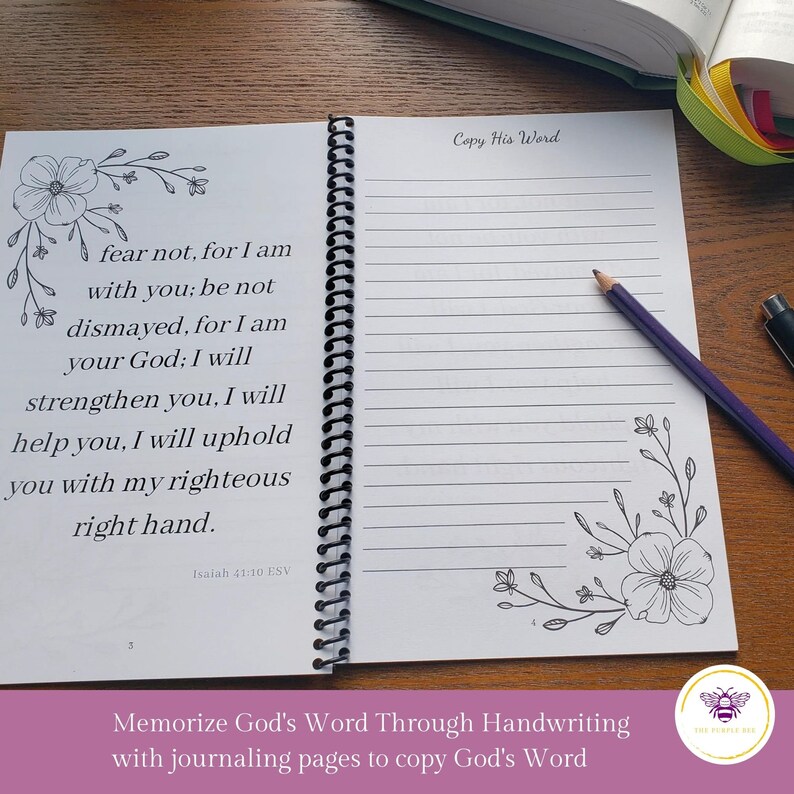 fear not, for I am
with you; be not
dismayed, for I am
your God; I will
strengthen you, I will
help you, I will uphold
you with my righteous
right hand.
Isaiah 41:10 ESV
3
Copy His Word
4
Memorize God's Word Through Handwriting
with journaling pages to copy God's Word
THE PURPLE BEE